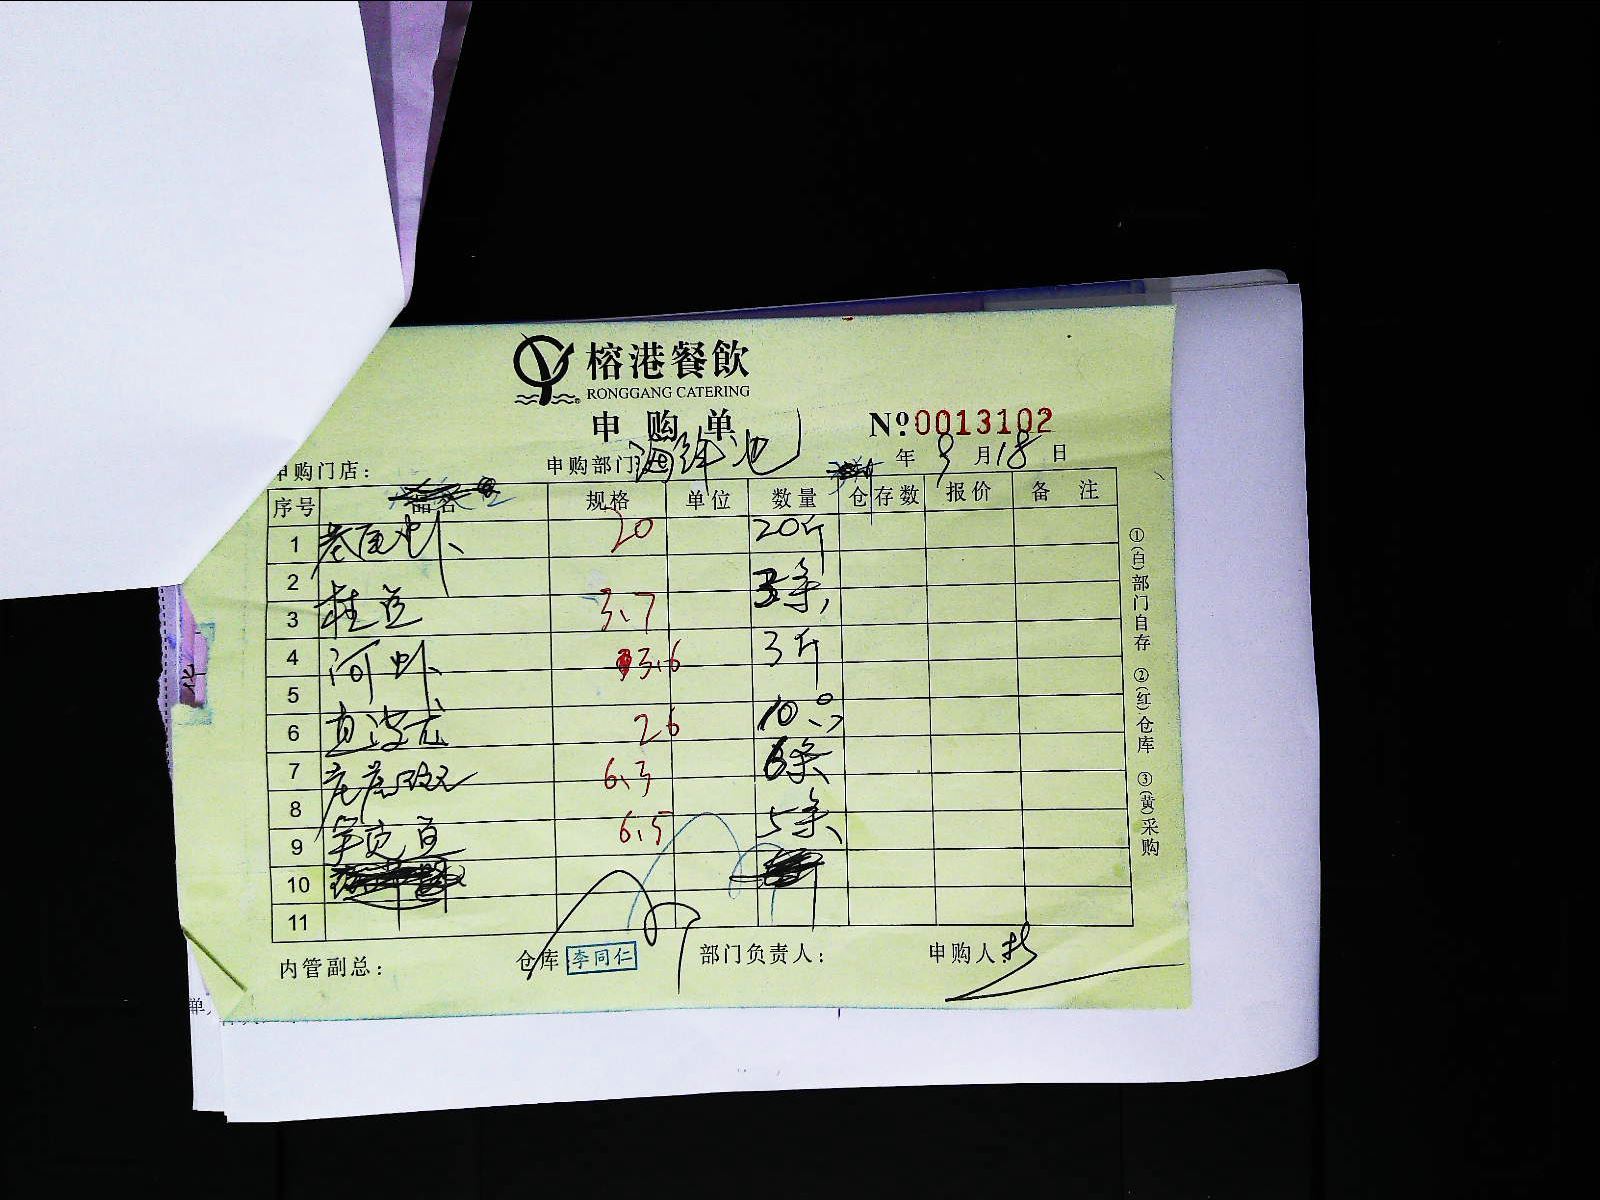 榕港餐飲
RONGGANG CATERING
申购单
№0013102
申购门店： 申购部门 海鲜池 年 9 月 18 日
序号 品名 规格 单位 数量 仓存数 报价 备注
1 基围虾 20 20斤
2
3 桂鱼 3.7 3条
4 河虾 3.6 3斤
5
6 26 10只
7 6.3 6条
8
9 笋壳鱼 6.5 5条
10
11
内管副总： 仓库 李同仁 部门负责人： 申购人：
①(白)部门自存 ②(红)仓库 ③(黄)采购